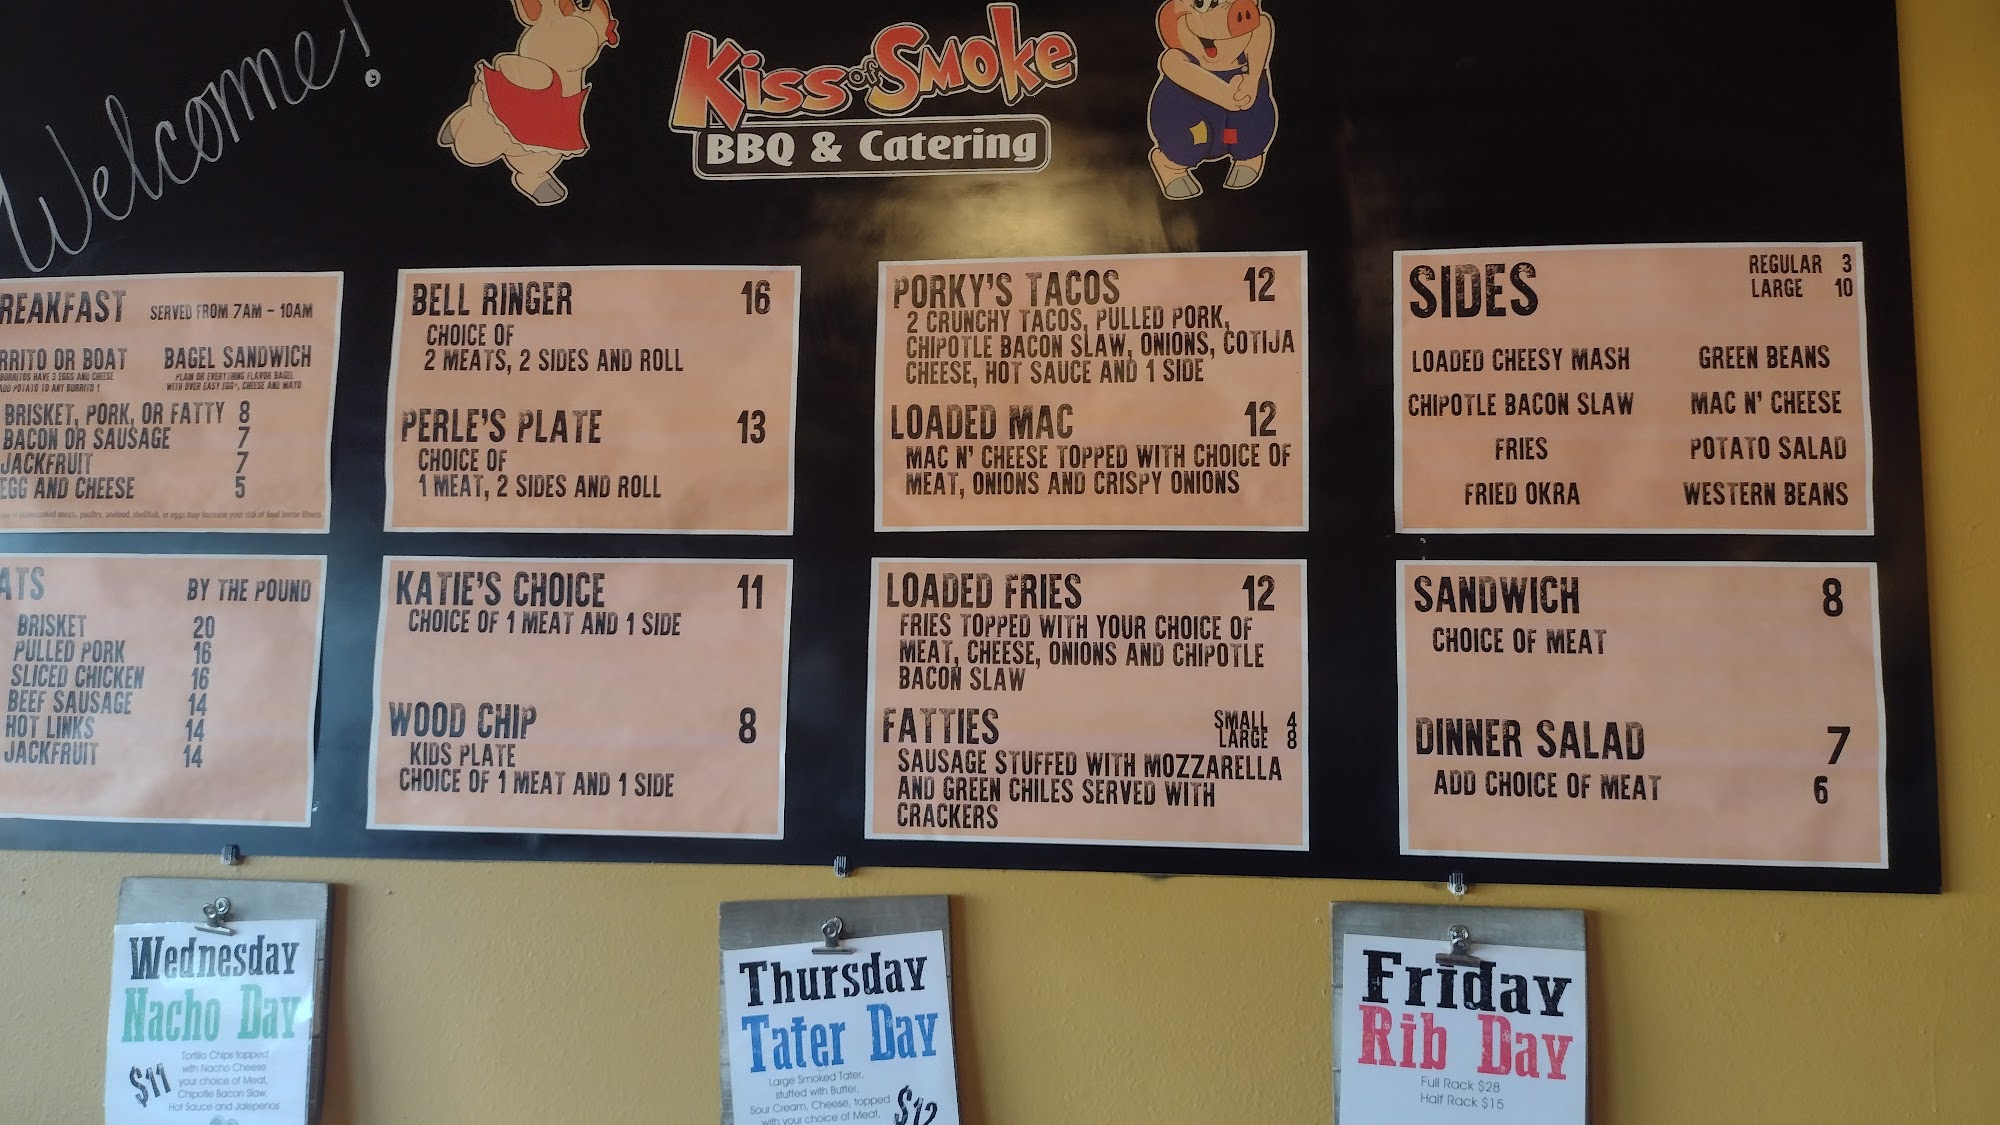 Welcome!
Kiss of Smoke
BBQ & Catering
REAKFAST SERVED FROM 7AM – 10AM
RRITO OR BOAT BAGEL SANDWICH
BURRITOS HAVE 3 EGGS AND CHEESE PLAIN OR EVERYTHING FLAVOR BAGEL
ADD POTATO TO ANY BURRITO 1 WITH OVER EASY EGG*, CHEESE AND MAYO
BRISKET, PORK, OR FATTY 8
BACON OR SAUSAGE 7
JACKFRUIT 7
EGG AND CHEESE 5
undercooked meats, poultry, seafood, shellfish, or eggs may increase your risk of food borne illness
ATS BY THE POUND
BRISKET 20
PULLED PORK 16
SLICED CHICKEN 16
BEEF SAUSAGE 14
HOT LINKS 14
JACKFRUIT 14
BELL RINGER 16
CHOICE OF
2 MEATS, 2 SIDES AND ROLL
PERLE'S PLATE 13
CHOICE OF
1 MEAT, 2 SIDES AND ROLL
KATIE'S CHOICE 11
CHOICE OF 1 MEAT AND 1 SIDE
WOOD CHIP 8
KIDS PLATE
CHOICE OF 1 MEAT AND 1 SIDE
PORKY'S TACOS 12
2 CRUNCHY TACOS, PULLED PORK,
CHIPOTLE BACON SLAW, ONIONS, COTIJA
CHEESE, HOT SAUCE AND 1 SIDE
LOADED MAC 12
MAC N' CHEESE TOPPED WITH CHOICE OF
MEAT, ONIONS AND CRISPY ONIONS
LOADED FRIES 12
FRIES TOPPED WITH YOUR CHOICE OF
MEAT, CHEESE, ONIONS AND CHIPOTLE
BACON SLAW
FATTIES SMALL 4
LARGE 8
SAUSAGE STUFFED WITH MOZZARELLA
AND GREEN CHILES SERVED WITH
CRACKERS
SIDES REGULAR 3
LARGE 10
LOADED CHEESY MASH GREEN BEANS
CHIPOTLE BACON SLAW MAC N' CHEESE
FRIES POTATO SALAD
FRIED OKRA WESTERN BEANS
SANDWICH 8
CHOICE OF MEAT
DINNER SALAD 7
ADD CHOICE OF MEAT 6
Wednesday
Nacho Day
$11
Tortilla Chips topped
with Nacho Cheese
your choice of Meat,
Chipotle Bacon Slaw,
Hot Sauce and Jalepenos
Thursday
Tater Day
Large Smoked Tater,
stuffed with Butter,
Sour Cream, Cheese, topped
with your choice of Meat,
$12
Friday
Rib Day
Full Rack $28
Half Rack $15